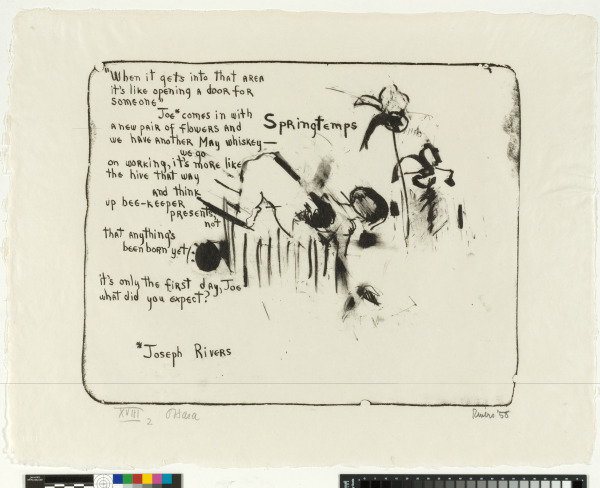 "When it gets into that area
it's like opening a door for
someone"
Joe* comes in with
a new pair of flowers and
we have another May whiskey—
we go
on working, it's more like
the hive that way
and think
up bee-keeper
presents,
not
that anything's
been born yet,
it's only the first day, Joe
what did you expect?
Springtemps
*Joseph Rivers
XVIII
2
O'Hara
Rivers '58